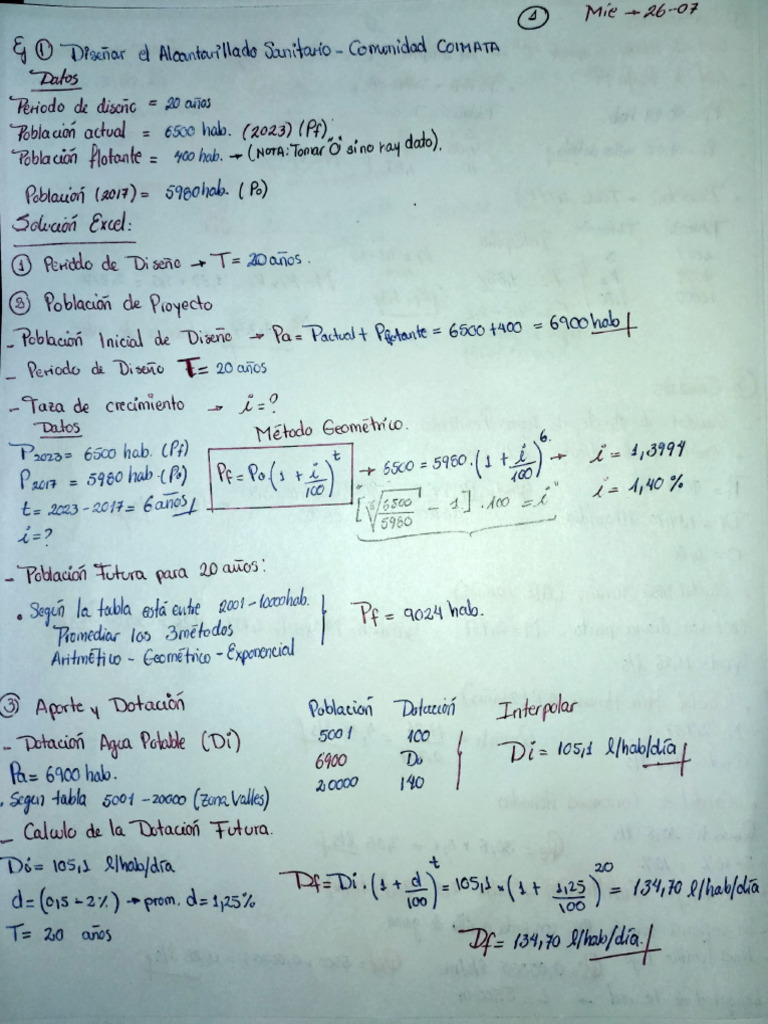 ① Mie → 26-07
Ej ① Diseñar el Alcantarillado Sanitario - Comunidad COIMATA
Datos
Periodo de diseño = 20 años
Población actual = 6500 hab. (2023) (Pf)
Población flotante = 400 hab. → (NOTA: Tomar "0" si no hay dato).
Población (2017) = 5980 hab. (Po)
Solución Excel:
① Periodo de Diseño → T = 20 años.
② Población de Proyecto
- Población Inicial de Diseño → Pa = Pactual + Pflotante = 6500 + 400 = 6900 hab
- Periodo de Diseño T = 20 años
- Taza de crecimiento → i = ?
Datos Método Geométrico.
P2023 = 6500 hab. (Pf)
P2017 = 5980 hab. (Po)
t = 2023 - 2017 = 6 años
i = ?
Pf = Po · (1 + i/100)^t → 6500 = 5980 · (1 + i/100)^6 → i = 1,3994
i = 1,40 %
"[⁶√(6500/5980) - 1] · 100 = i"
- Población Futura para 20 años:
• Según la tabla está entre 2001 - 10000 hab.
Promediar los 3 métodos
Aritmético - Geométrico - Exponencial
Pf = 9024 hab.
③ Aporte y Dotación
- Dotación Agua Potable (Di)
Pa = 6900 hab.
• Segun tabla 5001 - 20000 (Zona Valles)
Población Dotación
5001 100
6900 Do
20000 140
Interpolar
Di = 105,1 l/hab/día
- Calculo de la Dotación Futura.
Di = 105,1 l/hab/día
d = (0,5 - 2%) → prom. d = 1,25%
T = 20 años
Df = Di · (1 + d/100)^t = 105,1 * (1 + 1,25/100)^20 = 134,70 l/hab/día
Df = 134,70 l/hab/día.